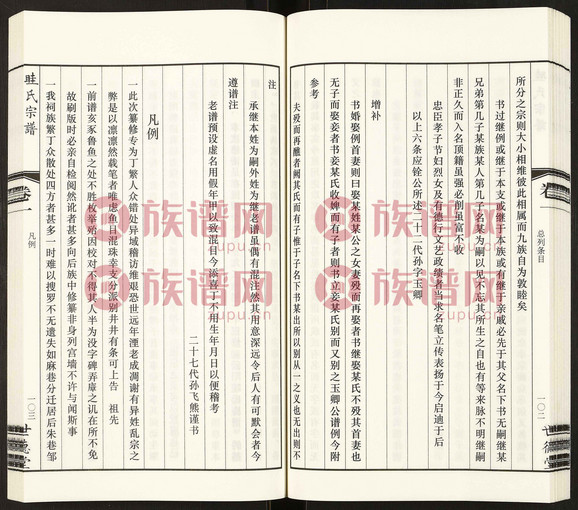 所分之宗则大小相维彼此相属而九族自为敦睦矣
书过继例或继于本支或继于本族或有继于亲戚必先于其父名下书无嗣继某
兄弟第几子某族某人第几子名某为嗣以见不忘其所生之自也有等来脉不明继嗣
非正久而入名顶籍虽强必削虽富不收
忠臣孝子节妇烈女及有德行文艺政绩者当求名笔立传表扬于今启迪于后
以上六条应铨公所述二十二代孙字玉卿
增补
书婚娶例首妻则曰娶某姓某公之女妻殁而再娶者书继娶某氏不殁其首妻也
无子而娶妾者书妾某氏收婢而有子者则书立妾某氏别而又别之玉卿公谱例今附
参考
夫殁而再醮者阙其氏而有子惟于子名下书某出所以别从一之义也无出则不
总列条目
一〇二
世德堂
注
承继本姓为嗣外姓为继老谱虽偶有混注然其用意深远令后人有可默会者今
遵谱注
老谱预设虚名用假年甲以致混目今添喜丁不用生年月日以便稽考
二十七代孙飞熊谨书
凡例
一此次纂修专为丁繁人众错处异域稽访维艰恐世远年湮老成凋谢有异姓乱宗之
弊是以凛凛然载笔者唯虑鱼目混珠幸支分派别井井有条可上告　祖先
一前谱亥豕鲁鱼之处不胜枚举殆因校对不得其人半为没字碑弄麞之讥在所不免
故刷版时必亲自检阅然讹者甚多向后族中修纂非身列宫墙不许与闻斯事
一我祠族繁丁众散处四方者甚多一时难以搜罗不无遗失如麻巷分迁居后朱巷邹
眭氏宗谱
卷一
凡例
一〇三
世德堂
族谱网
zupu.cn